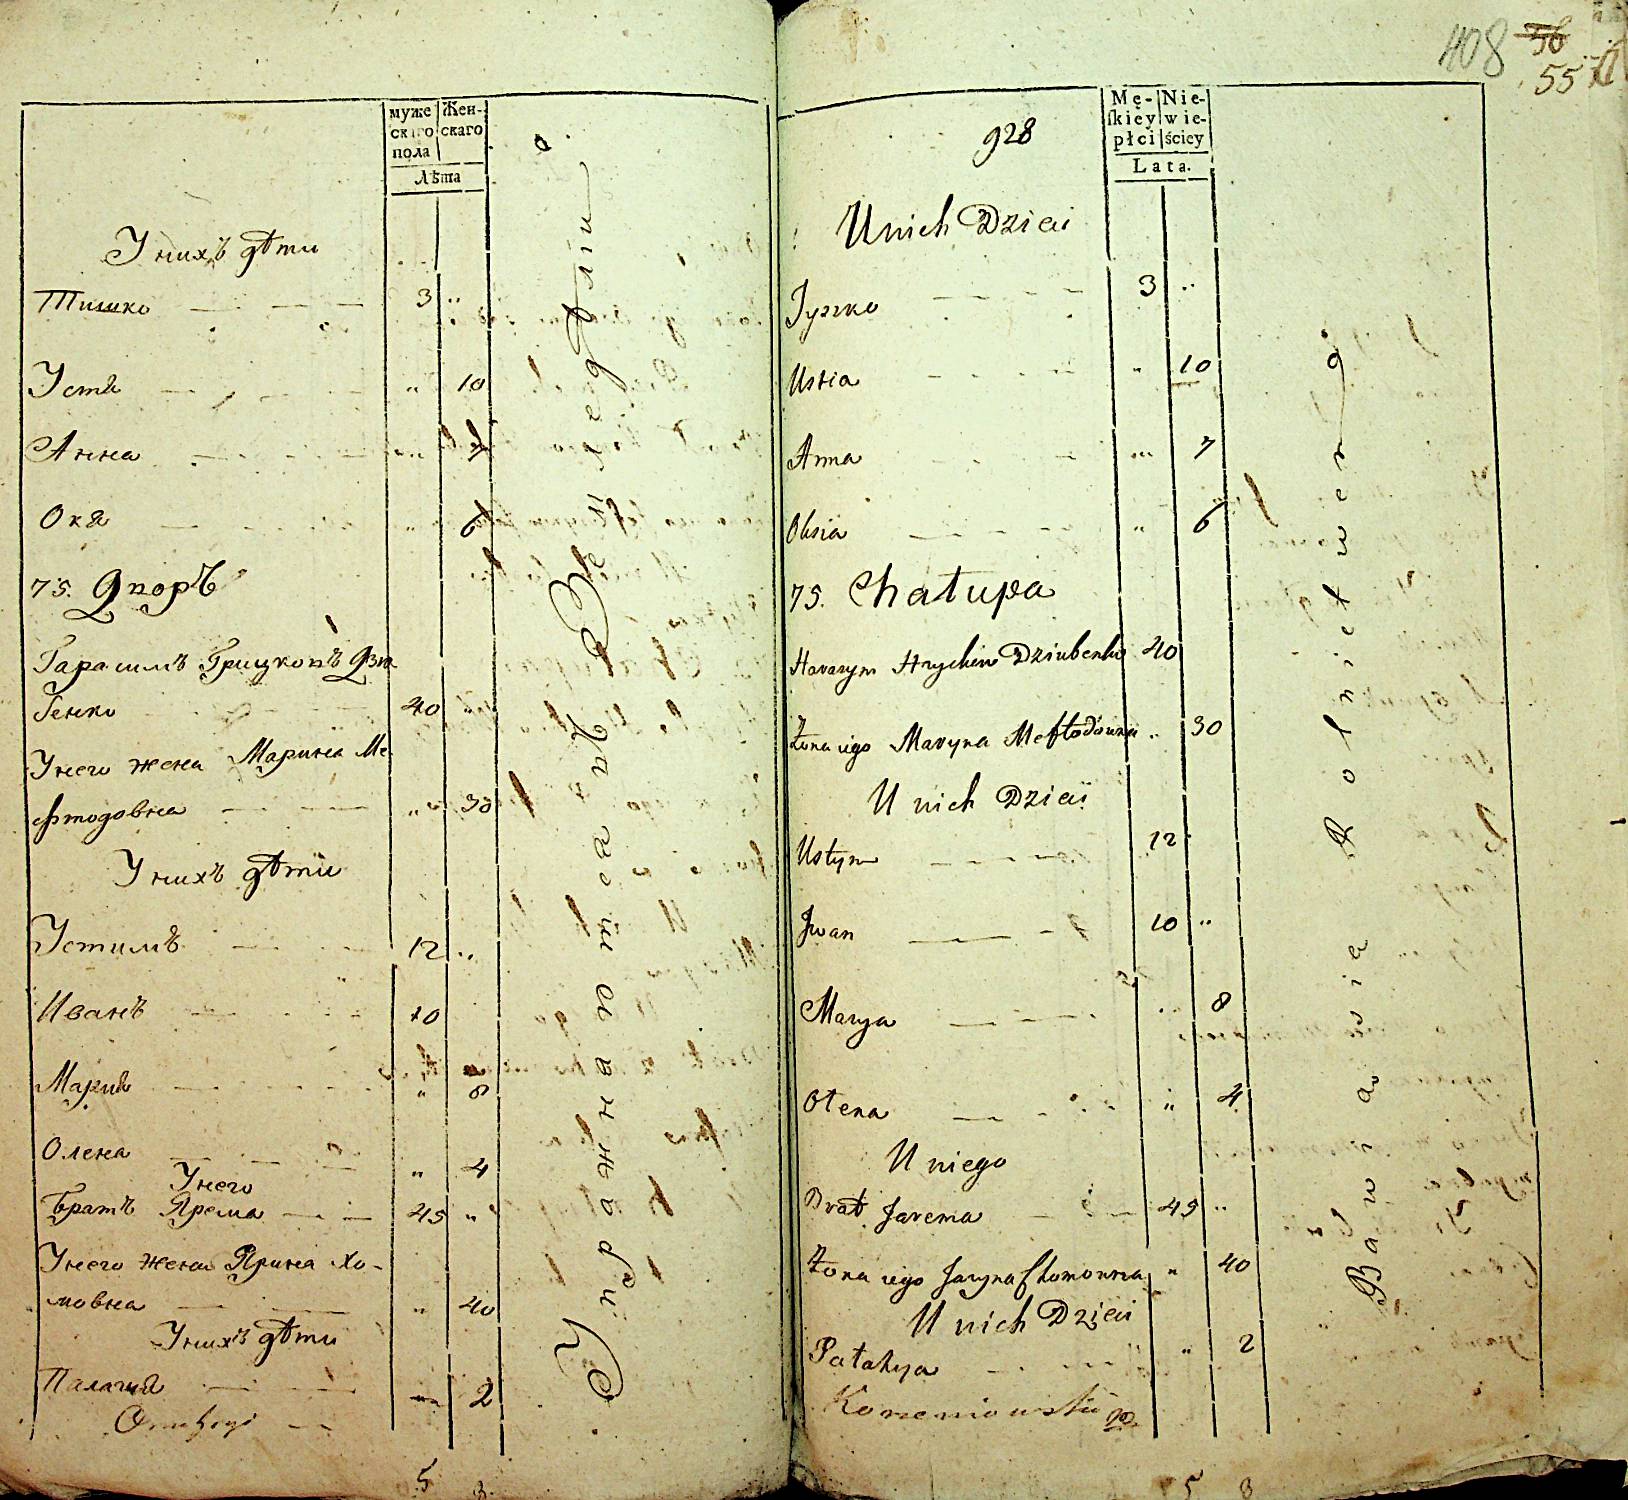 муже Жен-
скаго скаго
пола
Лѣта
У нихъ дѣти
Тишко 3 "
Устя " 10
Анна " 7
Окся " 6
75. Дворъ
Гарасимъ Грицковъ Дзю
бенко 40 "
У него жена Марина Ме-
фтодовна " 30
У нихъ дѣти
Устимъ 12 "
Иванъ 10
Мария " 8
Олена " 4
У него
Братъ Ярема 45 "
У него жена Ярина Хо-
мовна " 40
У нихъ дѣти
Палагия " 2
5 3
408 56
55
928
Mę- Nie-
skiey wie-
płci ściey
Lata.
U nich Dzieci
Tyszko 3 "
Ustia " 10
Anna " 7
Oksia " 6
75. Chałupa
Harasym Hryckiw Dziubenko 40
Żona iego Maryna Meftodowna " 30
U nich Dzieci
Ustym 12
Jwan 10 "
Marya " 8
Ołena " 4
U niego
Brat Jarema 45 "
Żona iego Jaryna Chomowna " 40
U nich Dzieci
Pałahya " 2
5 3
Bawia Rolnictwem